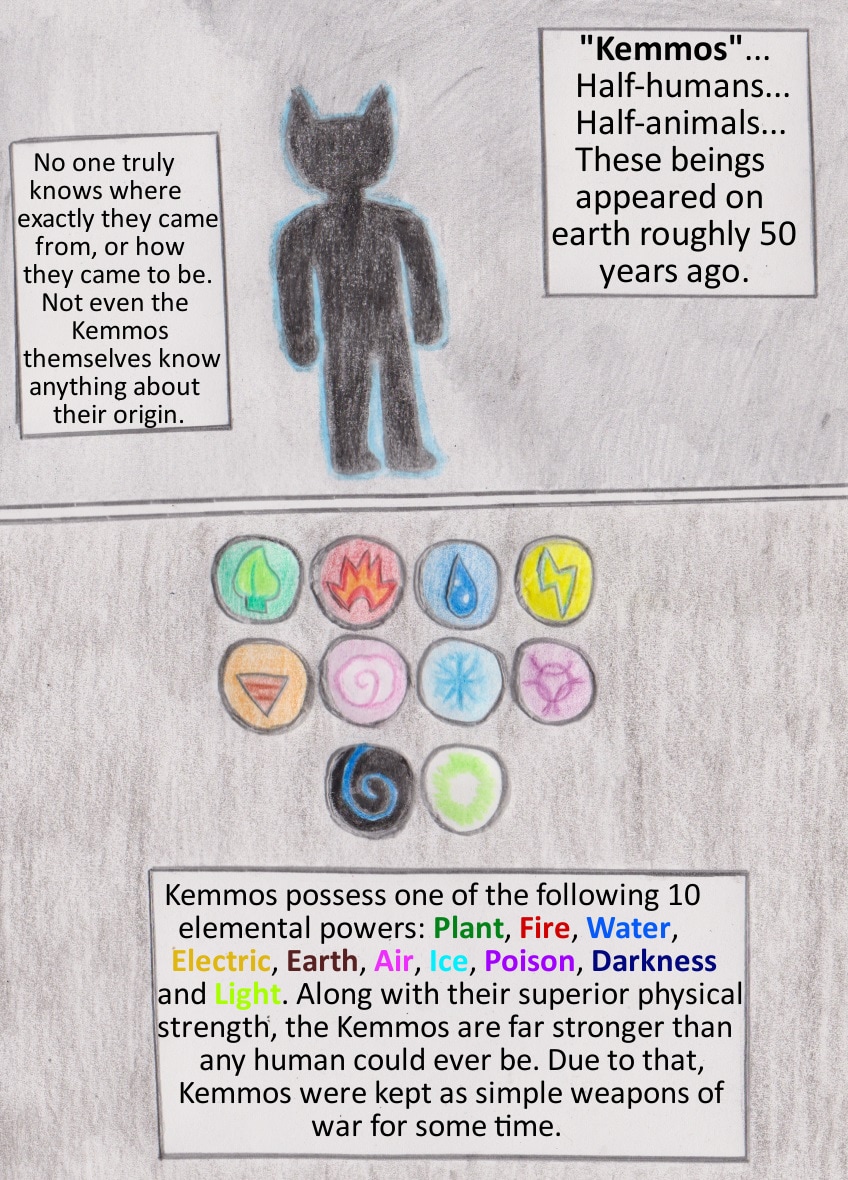 "Kemmos"...
Half-humans...
Half-animals...
These beings
appeared on
earth roughly 50
years ago.
No one truly
knows where
exactly they came
from, or how
they came to be.
Not even the
Kemmos
themselves know
anything about
their origin.
Kemmos possess one of the following 10
elemental powers: Plant, Fire, Water,
Electric, Earth, Air, Ice, Poison, Darkness
and Light. Along with their superior physical
strength, the Kemmos are far stronger than
any human could ever be. Due to that,
Kemmos were kept as simple weapons of
war for some time.